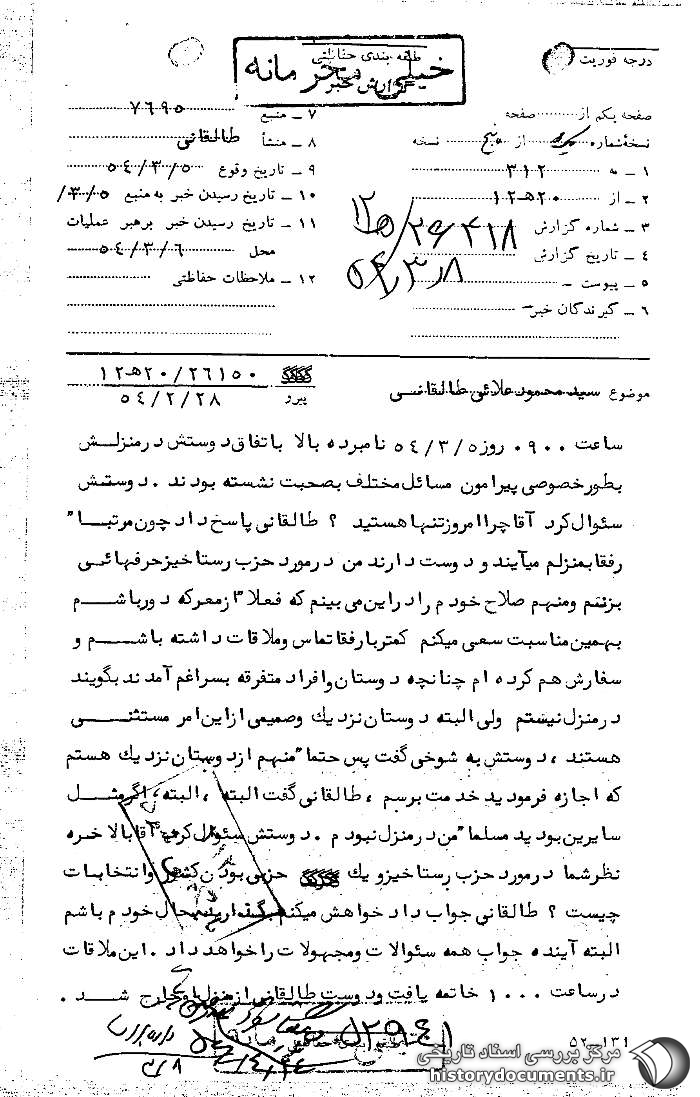 درجه فوریت
طبقه بندی حفاظتی
خیلی محرمانه
گزارش خبر
صفحه یکم از صفحه
نسخه شماره از پنج نسخه
۱ ـ به ۳۱۲
۲ ـ از ۲۰ هـ ۱۲
۳ ـ شماره گزارش ۱۲ هـ ۲۰/۲۶۴۱۸
۴ ـ تاریخ گزارش ۵۴/۳/۸
۵ ـ پیوست ـ
۶ ـ گیرندگان خبر ـ
۷ ـ منبع ۷۶۹۵
۸ ـ منشأ طالقانی
۹ ـ تاریخ وقوع ۵۴/۳/۵
۱۰ ـ تاریخ رسیدن خبر به منبع ۳/۵/
۱۱ ـ تاریخ رسیدن خبر برهبر عملیات
محل ۵۴/۳/۶
۱۲ ـ ملاحظات حفاظتی
موضوع سید محمود علائی طالقانی
۱۲هـ۲۰/۲۶۱۵۰
پیرو ۵۴/۲/۲۸
ساعت ۰۹۰۰ روز ۵۴/۳/۵ نامبرده بالا باتفاق دوستش در منزلش
بطور خصوصی پیرامون مسائل مختلف بصحبت نشسته بودند . دوستش
سئوال کرد آقا چرا امروز تنها هستید ؟ طالقانی پاسخ داد چون مرتبا"
رفقا بمنزلم میآیند و دوست دارند من در مورد حزب رستاخیز حرفهائی
بزنم ومنهم صلاح خودم را در این می بینم که فعلا" از معرکه دور باشم
بهمین مناسبت سعی میکنم کمتر با رفقا تماس وملاقات داشته باشم و
سفارش هم کرده ام چنانچه دوستان وافراد متفرقه بسراغم آمدند بگویند
در منزل نیستم ولی البته دوستان نزدیك وصمیمی از این امر مستثنی
هستند ، دوستش به شوخی گفت پس حتما" منهم از دوستان نزدیك هستم
که اجازه فرمودید خدمت برسم ، طالقانی گفت البته ، البته ، اگر مثل
سایرین بودید مسلما" من در منزل نبودم . دوستش سئوال کرد آقا بالاخره
نظر شما در مورد حزب رستاخیز و یك حزبی بودن کشور وانتخابات
چیست ؟ طالقانی جواب داد خواهش میکنم بگذارید بحال خودم باشم
البته آینده جواب همه سئوالات ومجهولات را خواهد داد . این ملاقات
در ساعت ۱۰۰۰ خاتمه یافت ودوست طالقانی از منزل او خارج شد .
۵۲ـ۱۳۱
مرکز بررسی اسناد تاریخی
historydocuments.ir